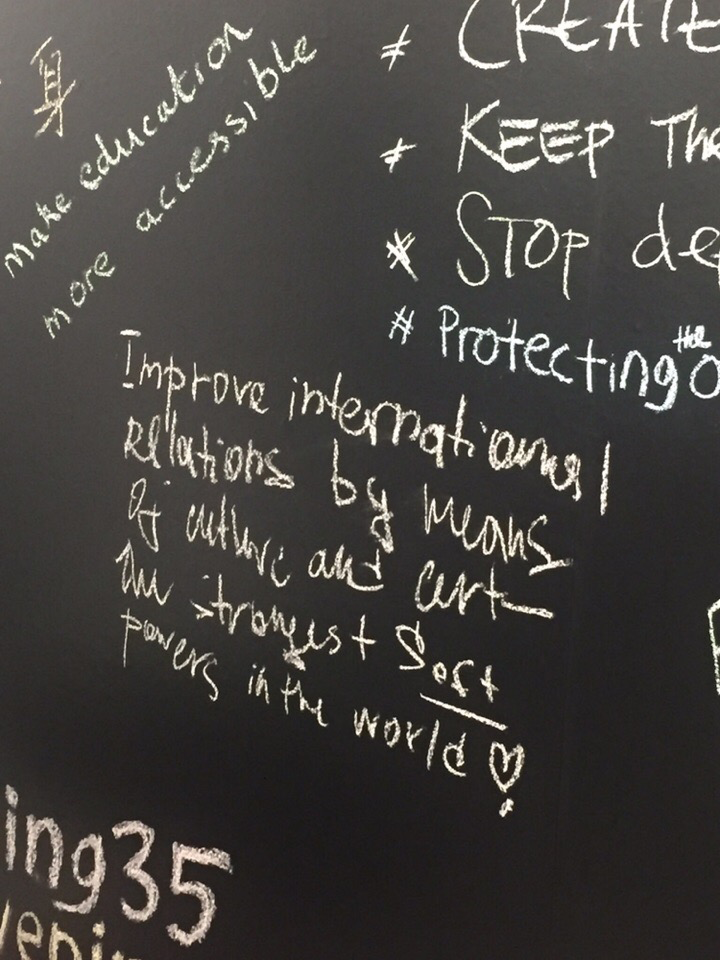 身
make education
more accessible
* CREATE
* KEEP The
* STOP de
# Protecting the
Improve international
relations by means
of culture and art
the strongest soft
powers in the world ♡
ing35